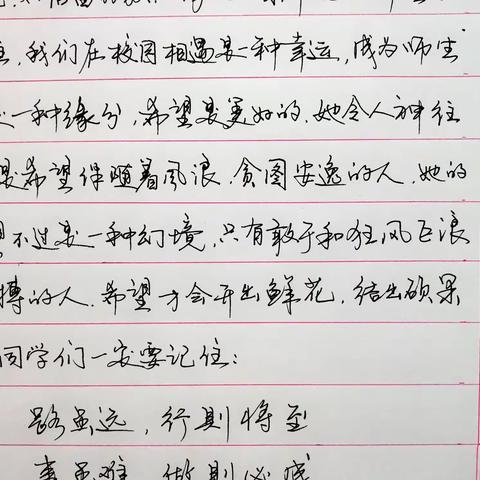 我们在校园相遇是一种幸运，成为师生
一种缘分，希望是美好的，她令人神往
是希望伴随着风浪，贪图安逸的人，她的
不过是一种幻境，只有敢于和狂风巨浪
搏的人，希望才会开出鲜花，结出硕果
同学们一定要记住：
路虽远，行则将至
事虽难，做则必成